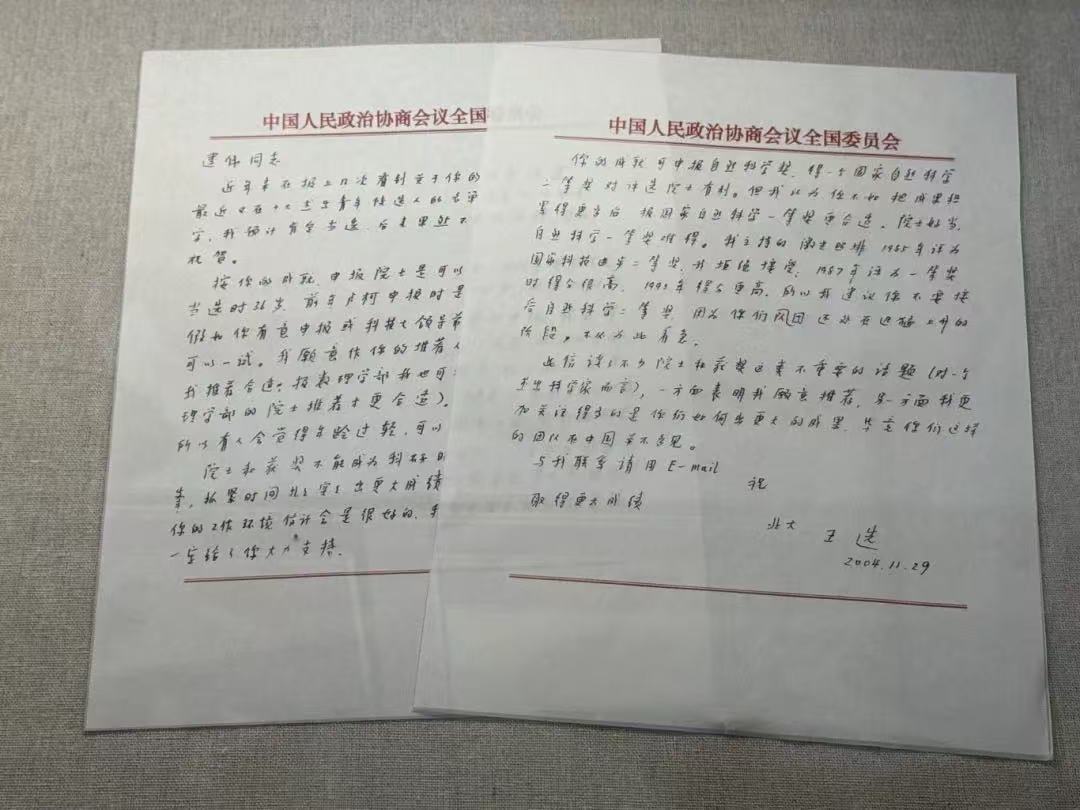 中国人民政治协商会议全国
建伟同志
近年来在报上几次看到关于你的
最近又在十大杰出青年候选人的名单
字，我预计肯定当选，后来果然不
祝贺。
按你的成就，申报院士是可以
当选时36岁，前年卢柯申报时是
假如你有意申报或科技大领导希
可以一试。我愿意作你的推荐人
我推荐合适。报数理学部我也可
理学部的院士推荐才更合适）。
所以有人会觉得年龄过轻，可以
院士和获奖不能成为科研的
抓紧时间扎扎实实出更大成绩
你的工作环境估计会是很好的，
一定给了你大力支持。
中国人民政治协商会议全国委员会
你的成就可申报自然科学奖，得一个国家自然科学
二等奖对评选院士有利。但我以为你不如把成果积
累得更多后，报国家自然科学一等奖更合适。院士好当，
自然科学一等奖难得。我主持的激光照排1985年评为
国家科技进步二等奖，我拒绝接受，1987年评为一等奖
时得分很高，1995年得分更高，所以我建议你不要接
合自然科学二等奖，因为你们团 这处在迅猛上升的
阶段。不必为此着急。
此信谈了不少院士和获奖这类不重要的话题（对一个
杰出科学家而言），一方面表明我愿意推荐，另一方面我更
加关注得多的是你们如何出更大的成果，毕竟你们这样
的团队在中国并不多见。
与我联系请用E-mail
祝
取得更大成绩
北大 王选
2004.11.29